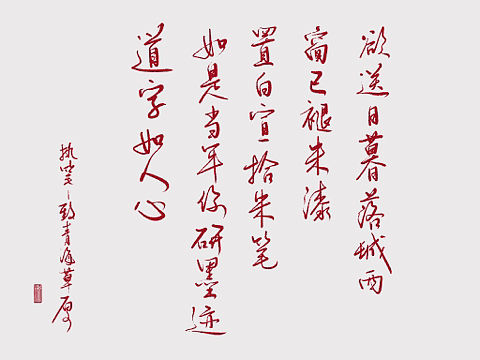 欲送日暮落城西
窗已褪朱漆
置白宣拾朱笔
如是当年你研墨迹
道字如人心
执笔~致青海草原